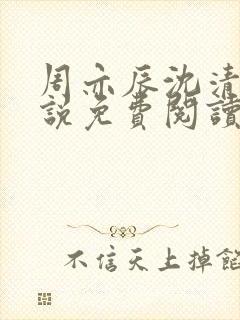 周亦辰沈清
說免費閱讀
不信天上掉餡